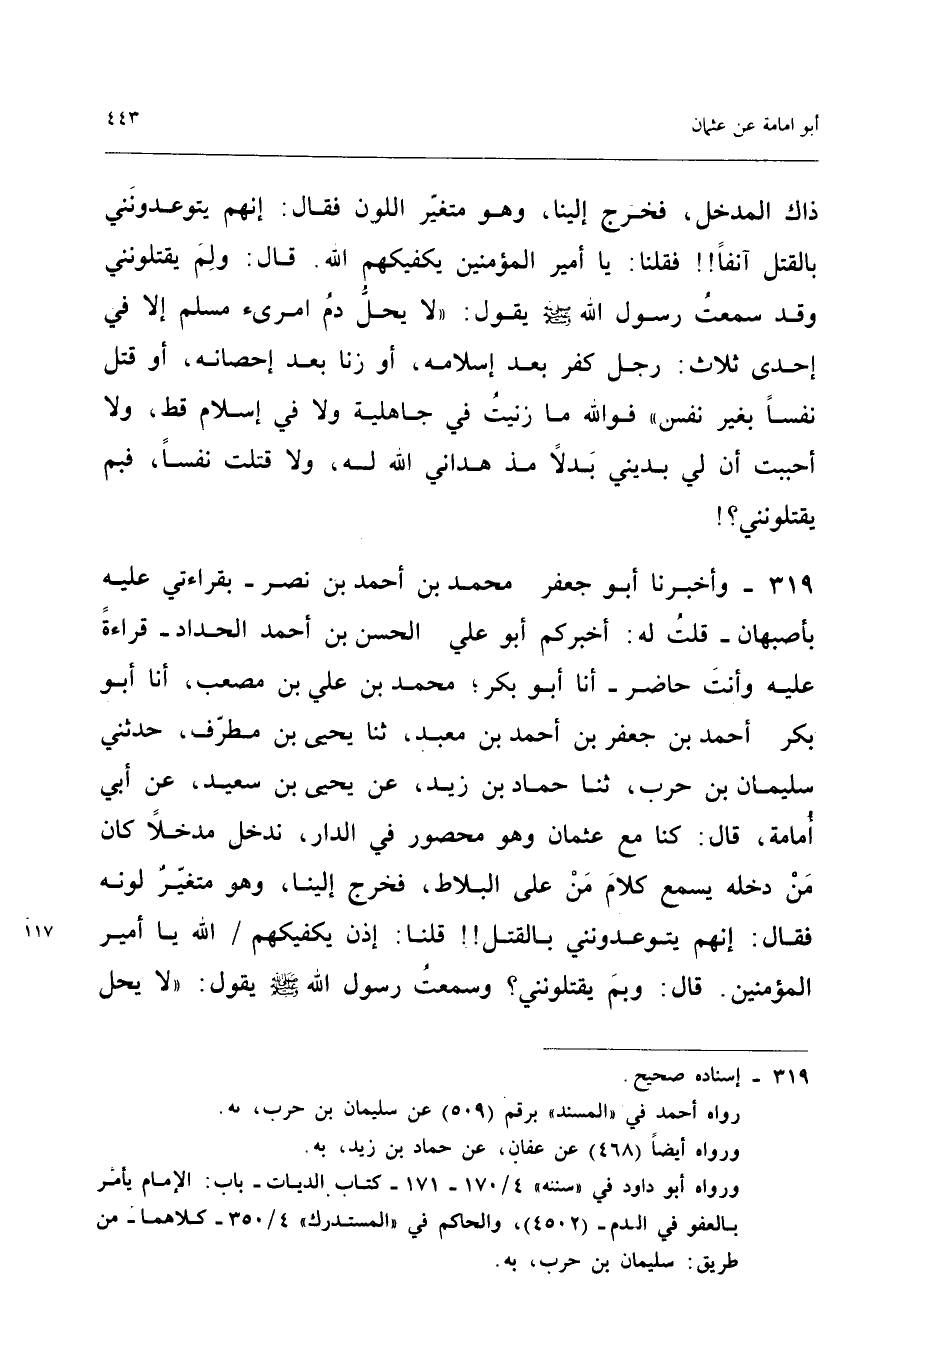 أبو امامة عن عثمان
٤٤٣
ذاك المدخل، فخرج إلينا، وهو متغيّر اللون فقال: إنهم يتوعدونَني
بالقتل آنفاً!! فقلنا: يا أمير المؤمنين يكفيكهم الله. قال: ولِمَ يقتلونني
وقد سمعتُ رسول الله ﷺ يقول: «لا يحلُّ دمُ امرىء مسلم إلا في
إحدى ثلاث: رجل كفر بعد إسلامه، أو زنا بعد إحصانه، أو قتل
نفساً بغير نفس» فوالله ما زنيتُ في جاهلية ولا في إسلام قط، ولا
أحببت أن لي بديني بَدلاً مذ هداني الله له، ولا قتلت نفساً، فبم
يقتلونني؟!
٣١٩ - وأخبرنا أبو جعفر محمد بن أحمد بن نصر - بقراءتي عليه
بأصبهان - قلتُ له: أخبركم أبو علي الحسن بن أحمد الحداد - قراءةً
عليه وأنتَ حاضر - أنا أبو بكر؛ محمد بن علي بن مصعب، أنا أبو
بكر أحمد بن جعفر بن أحمد بن معبد، ثنا يحيى بن مطرّف، حدثني
سليمان بن حرب، ثنا حماد بن زيد، عن يحيى بن سعيد، عن أبي
أُمامة، قال: كنا مع عثمان وهو محصور في الدار، ندخل مدخلاً كان
مَنْ دخله يسمع كلامَ مَنْ على البلاط، فخرج إلينا، وهو متغيّرُ لونه
فقال: إنهم يتوعدونني بالقتل!! قلنا: إذن يكفيكهم / الله يا أمير
١١٧
المؤمنين. قال: وبمَ يقتلونني؟ وسمعتُ رسول الله ﷺ يقول: «لا يحل
٣١٩ - إسناده صحيح.
رواه أحمد في «المسند» برقم (٥٠٩) عن سليمان بن حرب، به.
ورواه أيضاً (٤٦٨) عن عفان، عن حماد بن زيد، به.
ورواه أبو داود في «سننه» ٤/ ١٧٠ - ١٧١ - كتاب الديات - باب: الإمام يأمُر
بالعفو في الدم - (٤٥٠٢)، والحاكم في «المستدرك» ٤/ ٣٥٠ - كلاهما - من
طريق: سليمان بن حرب، به.